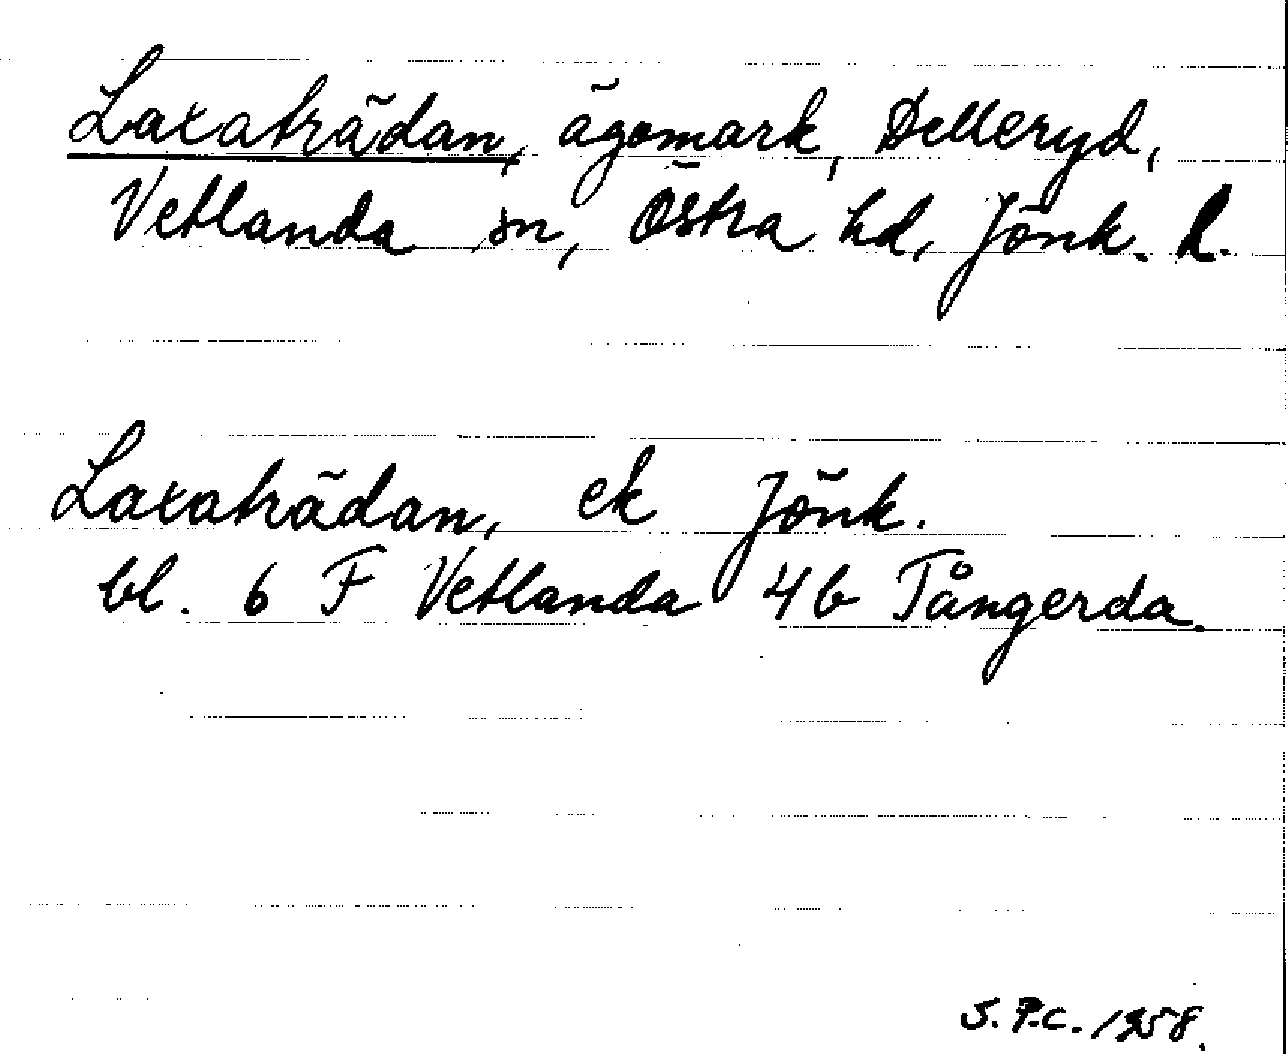 Laxaträdan, ägomark, Delleryd,
Vetlanda sn, Östra hd, Jönk. l.
Laxaträdan, ek Jönk.
bl. 6 F Vetlanda 4b Tångerda.
S.P.C. 1958.